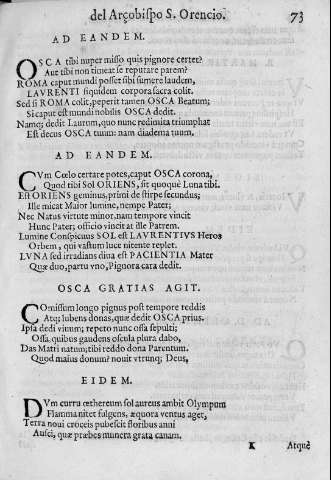 del Arçobiſpo S. Orencio. 73
AD EANDEM.
OSCA tibi nuper miſſo quis pignore certet?
Aut tibi non timeat ſe reputare parem?
ROMA caput mundi poſſet ſibi ſumere laudem,
LAVRENTI ſiquidem corpora ſacra colit.
Sed ſi ROMA colit, peperit tamen OSCA Beatum;
Si caput eſt mundi nobilis OSCA dedit.
Namq; dedit Laurum, quo nunc redimita triumphat
Eſt decus OSCA tuum: nam diadema tuum.
AD EANDEM.
CVm Cœlo certare potes, caput OSCA corona,
Quod tibi Sol ORIENS, ſit quoquè Luna tibi.
Eſt ORIENS geminus, primi de ſtirpe ſecundus;
Ille micat Maior lumine, nempe Pater;
Nec Natus virtute minor, nam tempore vincit
Hunc Pater; officio vincit at ille Patrem.
Lumine Conſpicuus SOL eſt LAVRENTIVS Heros
Orbem, qui vaſtum luce nitente replet.
LVNA ſed irradians diua eſt PACIENTIA Mater
Quæ duo, partu vno, Pignora cara dedit.
OSCA GRATIAS AGIT.
COmiſſum longo pignus poſt tempore reddis
Atq; lubens donas, quæ dedit OSCA prius.
Ipſa dedi viuum; repeto nunc oſſa ſepulti;
Oſſa, quibus gaudens oſcula plura dabo,
Das Matri natum; tibi reddo dona Parentum.
Quod maius donum? nouit vtrunq; Deus,
EIDEM.
DVm curru œthereum ſol aureus ambit Olympum
Flamma nitet fulgens, æquora ventus aget,
Terra noui croceis pubeſcit floribus anni
Auſci, quæ præbes munera grata canam.
K Atquè